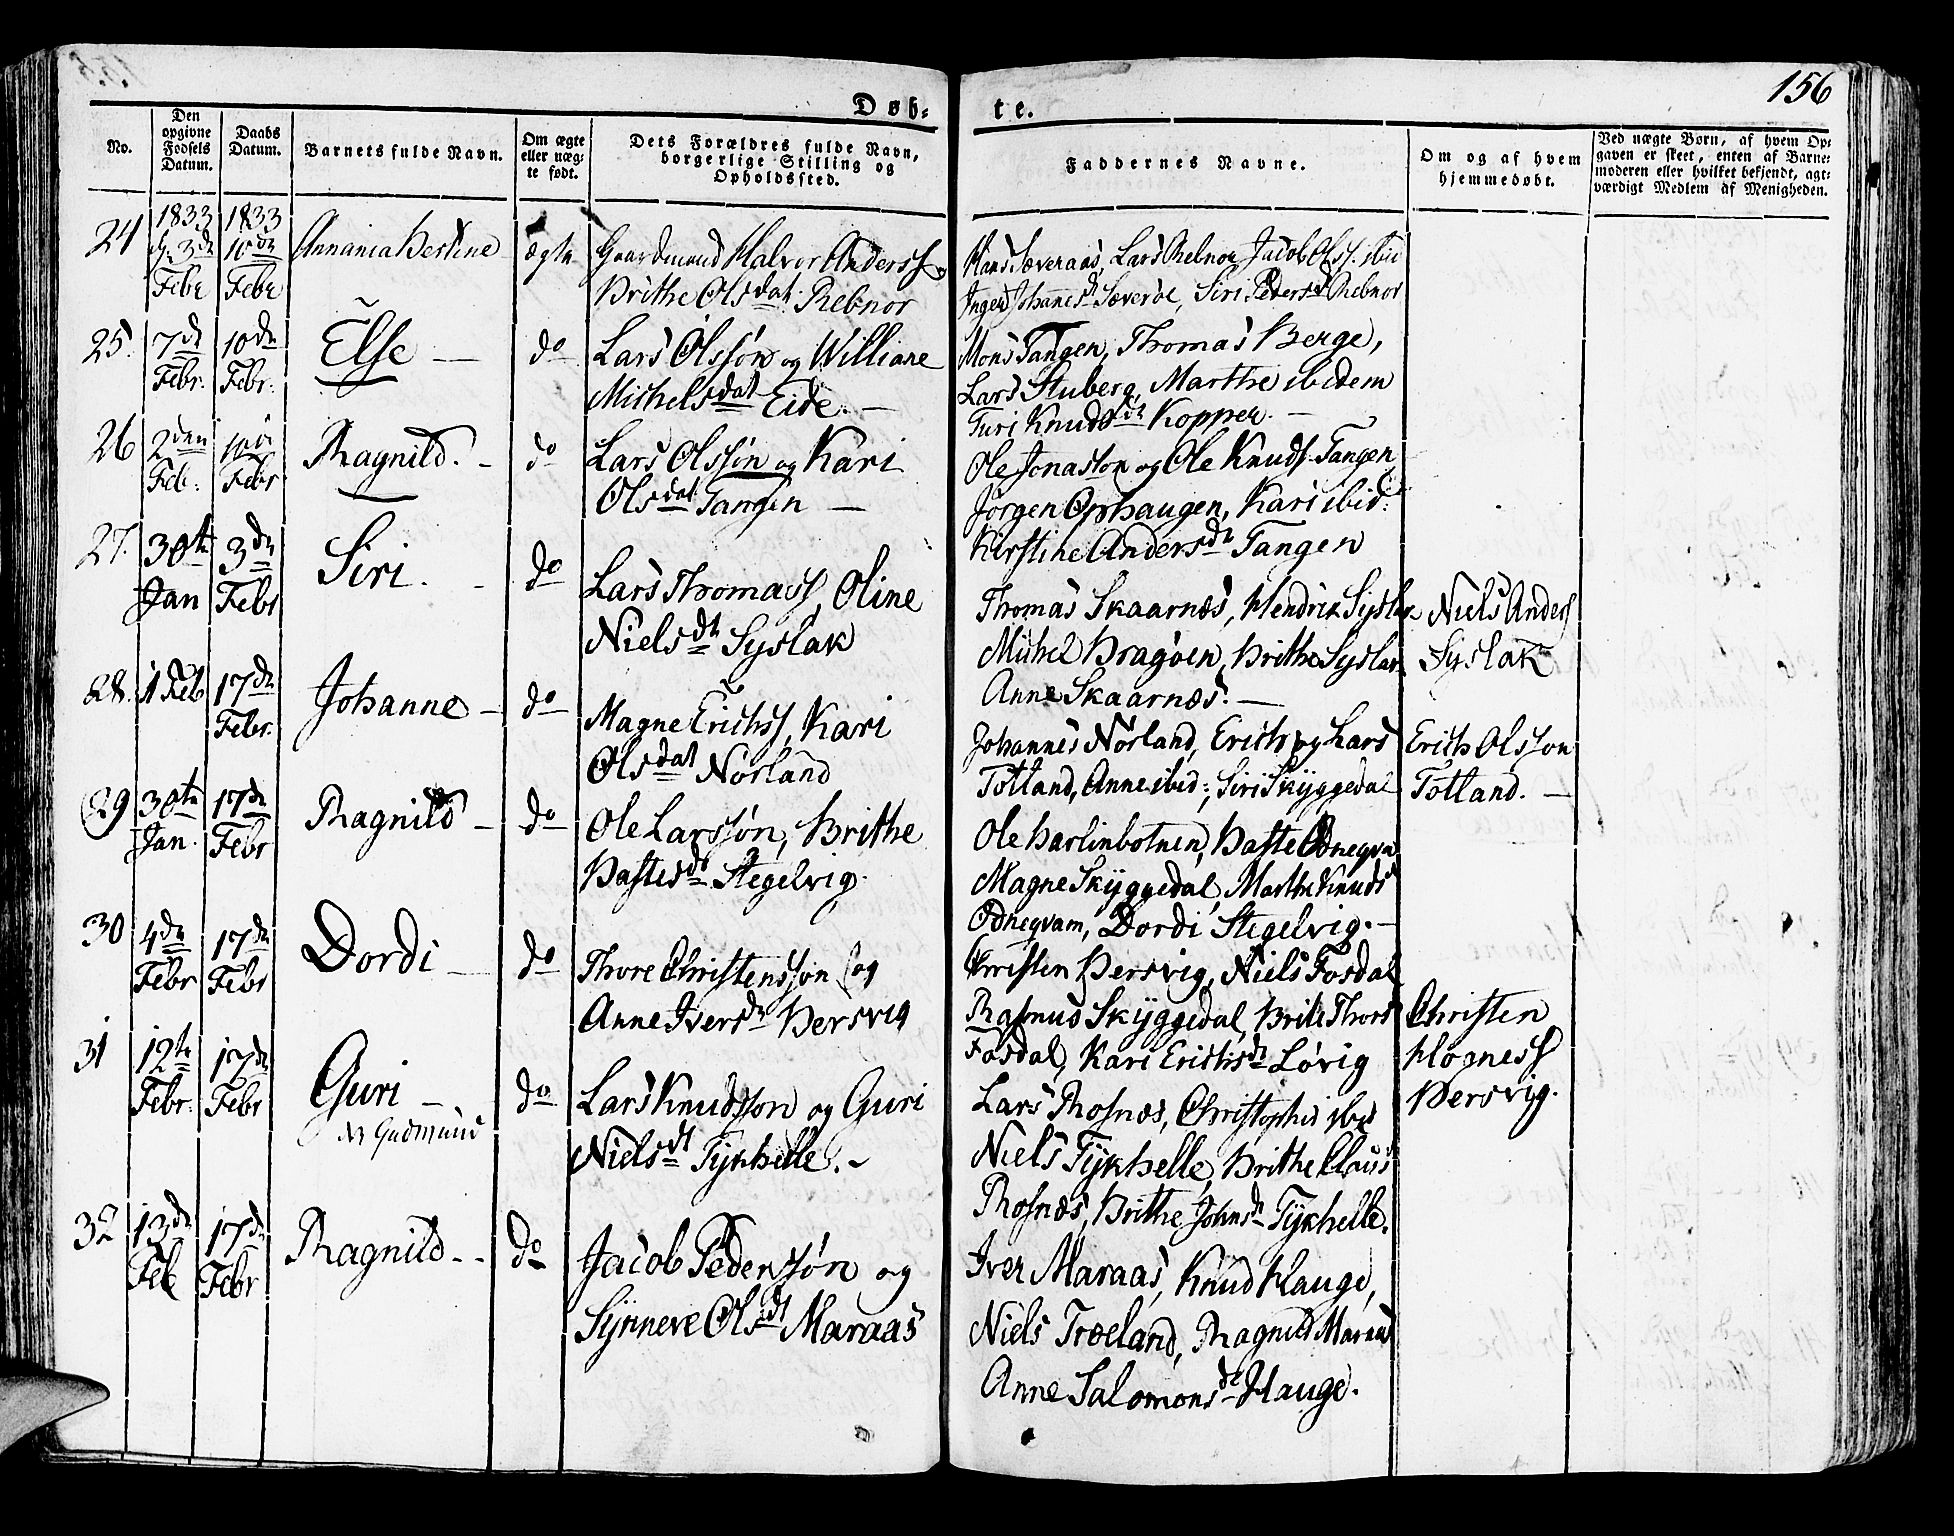 156
Døb-
te.
No.
Den opgivne Fødsels Datum.
Daabs Datum.
Barnets fulde Navn.
Om ægte eller uægte født.
Dets Forældres fulde Navn, borgerlige Stilling og Opholdssted.
Faddernes Navne.
Om og af hvem hjemmedøbt.
Ved uægte Børn, af hvem Opgaven er skeet, enten af Barnemoderen eller hvilket bekjendt, agtværdigt Medlem af Menigheden.
24 1833 3de Febr 1833 10de Febr Annania Bertine ægte Gaardmand Halvor Anderss og
Brithe Olsdat. Rebnor
Hans Sæveraas, Lars Rebnor, Jacob Olss. ibid
Inger Johannesd Sæveröe, Siri Pedersd Rebnor
25. 7de Febr. 10de Febr. Else — do Lars Olssøn og Williane
Michelsdat Eide. —
Mons Tangen, Thomas Berge,
Lars Stuberg, Marthe ibidem
Turi Knudsdr Kopper. —
26 2den Feb. 10de Febr Ragnild. - do Lars Olssøn og Kari
Olsdat Tangen —
Ole Jonasson og Ole Knuds. Tangen
Jörgen Ophaugen, Kari ibid:
Kirstine Andersdr Tangen
27. 30te Jan 3de Febr Siri. - do Lars Thomass, Oline
Nielsdt Syslak
Thomas Skaarnæs, Hendrik Syslak
Michel Dragöen, Brithe Syslak
Anne Skaarnæs. —
Niels Anderss
Syslak
28. 1 Feb 17de Febr. Johanne - do Magne Erichss, Kari
Olsdat Nörland
Johannes Nörland, Erich og Lars
Totland, Anne ibid:, Siri Skyggedal
Erich Olsson
Totland. —
29 30te Jan. 17de Febr Ragnild - do Ole Larssøn, Brithe
Bastesdt Stegelvig.
Ole Harlinbotnen, Baste Odneqva
Magne Skyggedal, Marthe Knuds
Odneqvam, Dordi Stegelvig. —
30 4de Febr 17de Febr Dordi — do Thore Christensson og
Anne Iversdr Bersvig
Christen Bersvig, Niels Fosdal
Rasmus Skyggedal, Brite Thors
Fosdal, Kari Erichsdr Lövig
Christen
Hogness
Bersvig.
31 12te Febr. 17de Febr Guri -
Gudmund
do Lars Knudsson og Guri
Nielsdt Tykhelle. -
Lars Rosnæs, Christopher ibid
Niels Tykhelle, Brithe Claus
Rosnæs, Brithe Johnsdr Tykhelle.
32 13de Feb 17de Febr Ragnild - - do Jacob Pederssøn og
Synneve Olsdt Maraas
Iver Maraas, Knud Hauge,
Niels Træland, Ragnild Maraas
Anne Salomonsdr Hauge.